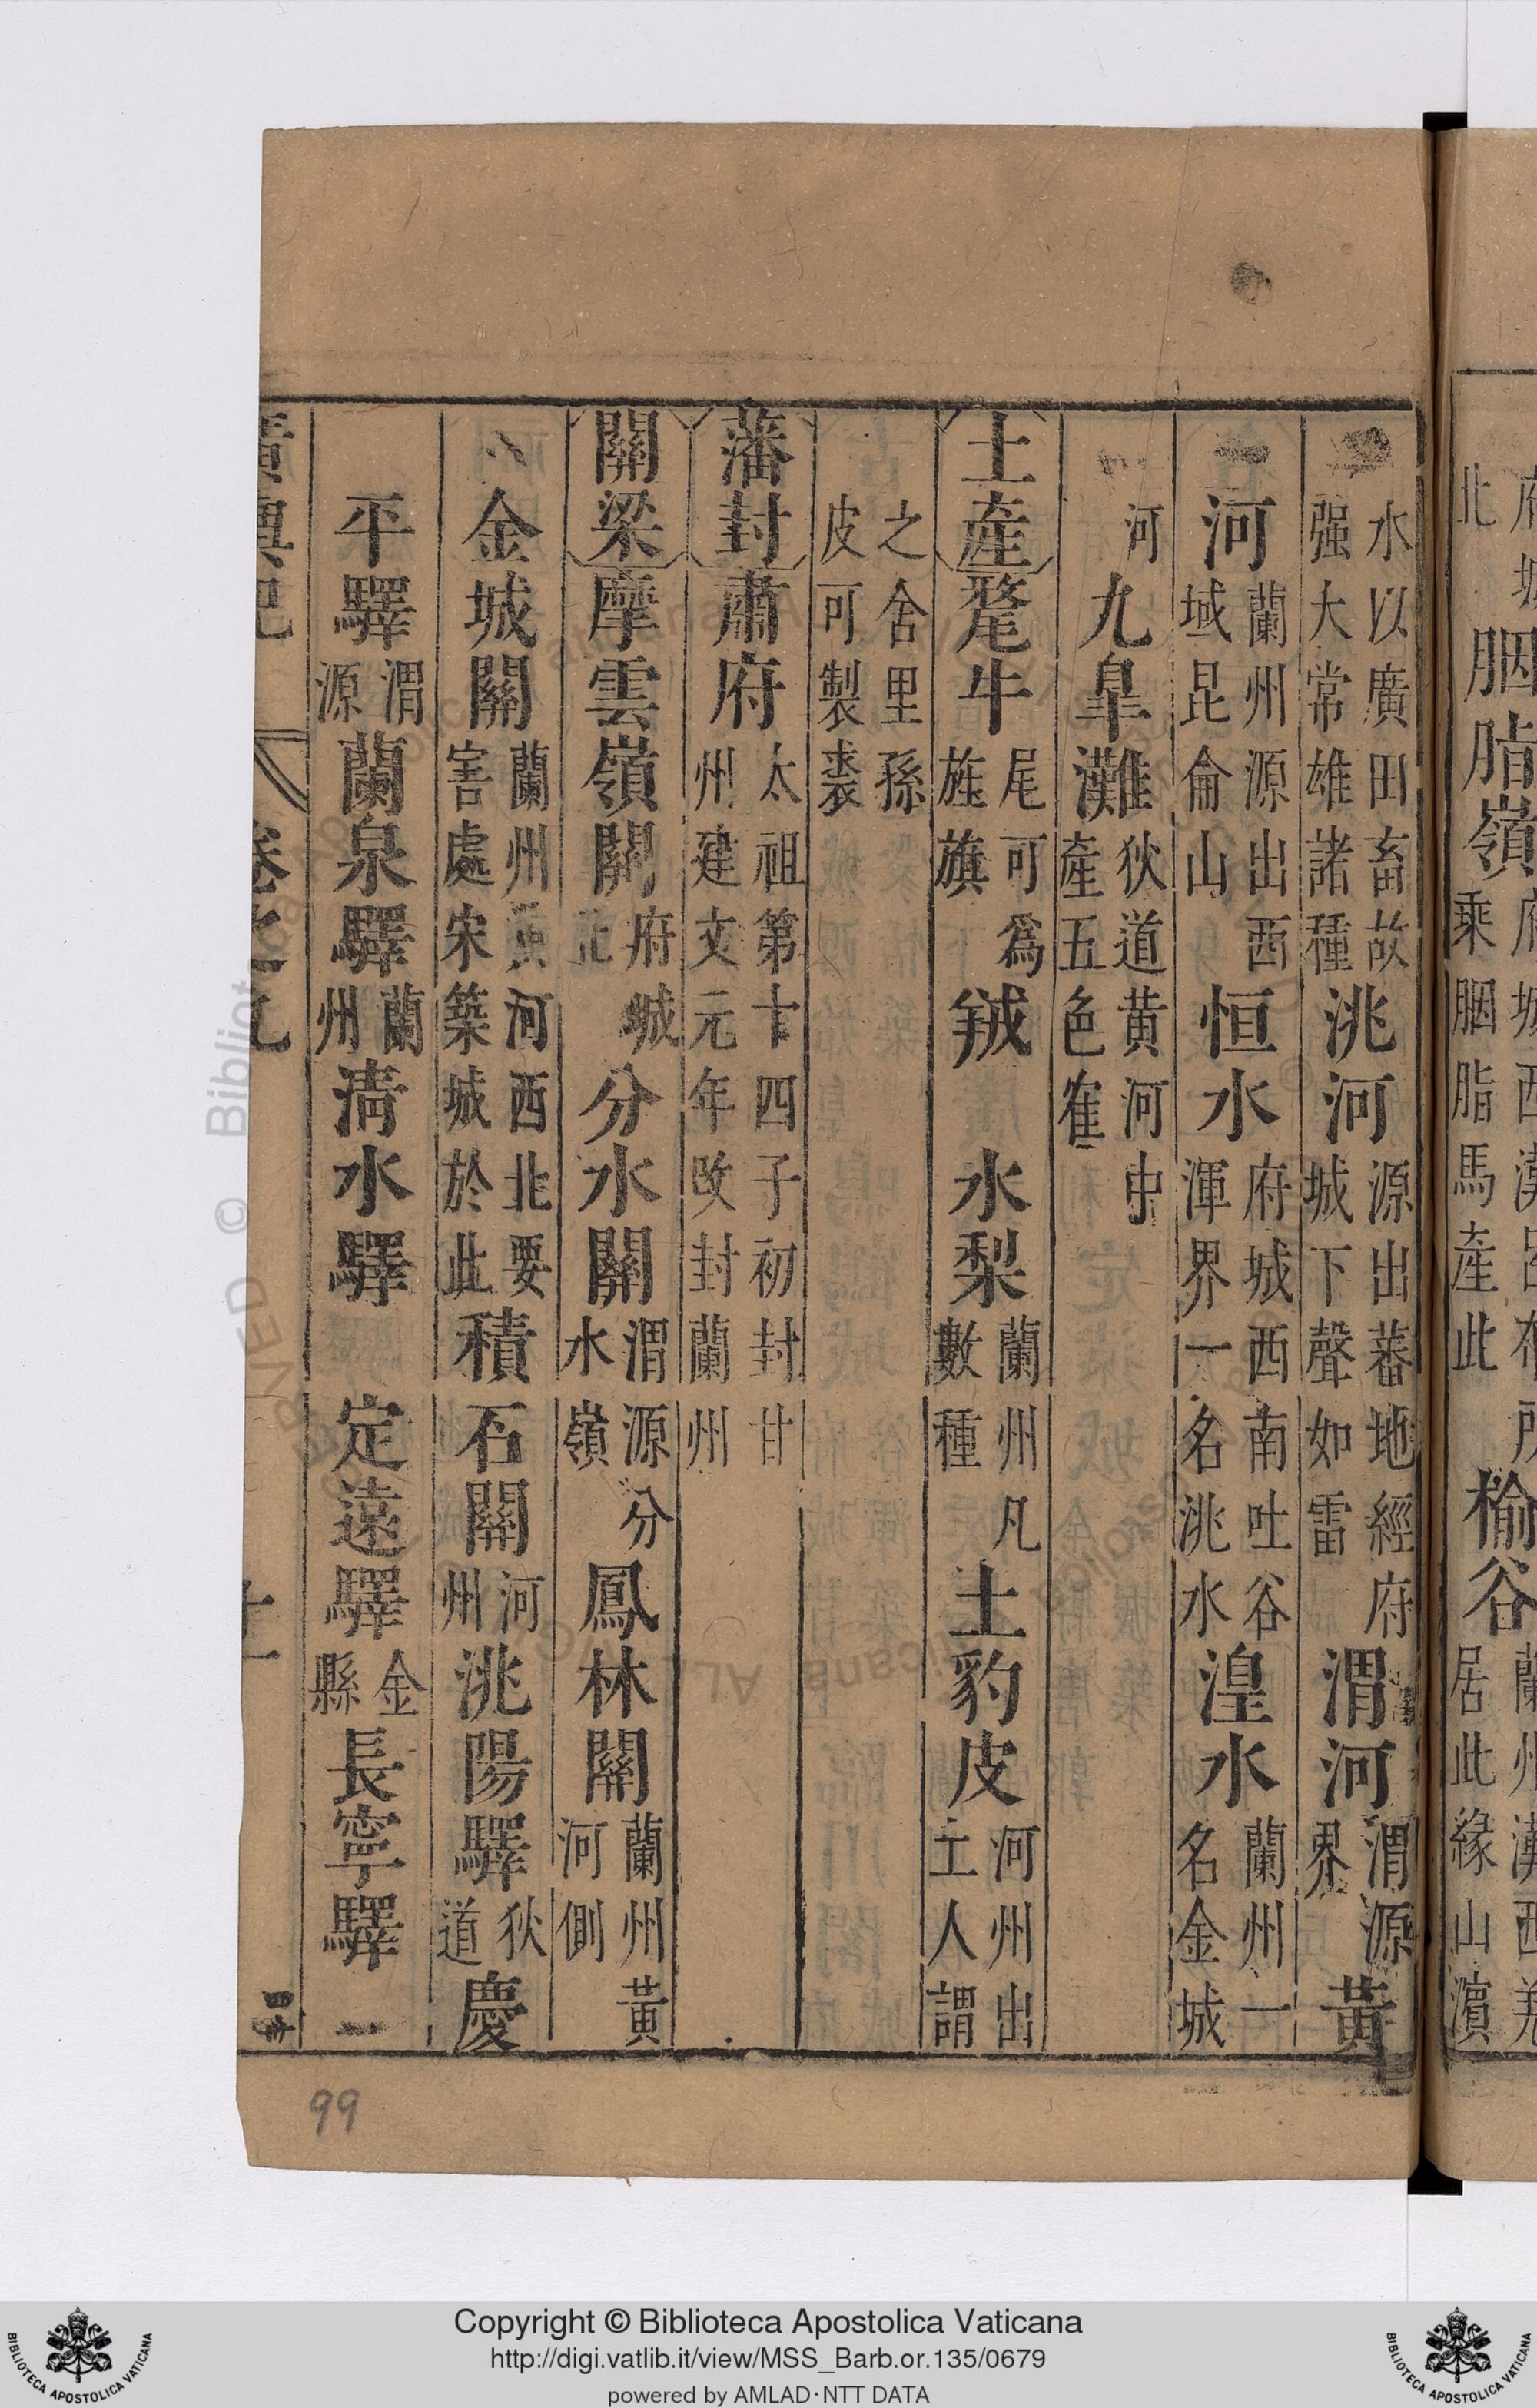 北胭脂嶺乘胭脂馬產此榆谷居此緣山濱
水以廣田畜故强大常雄諸種洮河源出蕃地經府城下聲如雷渭河渭源界黃
河蘭州源出西域昆侖山恒水府城西南吐谷渾界一名洮水湟水蘭州一名金城
河九皐灘狄道黃河中產五色雀
土產氂牛尾可爲旌旗羢水梨蘭州凡數種土豹皮河州出工人謂
之舍里孫皮可製裘
藩封肅府太祖第十四子初封甘州建文元年改封蘭州
關梁摩雲嶺關府城北分水關渭源分水嶺鳳林關蘭州黃河側
金城關蘭州黃河西北要害處宋築城於此積石關河州洮陽驛狄道慶
平驛渭源蘭泉驛蘭州淸水驛定遠驛金縣長寧驛
廣輿記 卷之九 十一
99
Copyright © Biblioteca Apostolica Vaticana
http://digi.vatlib.it/view/MSS_Barb.or.135/0679
powered by AMLAD·NTT DATA
BIBLIOTECA APOSTOLICA VATICANA
BIBLIOTECA APOSTOLICA VATICANA